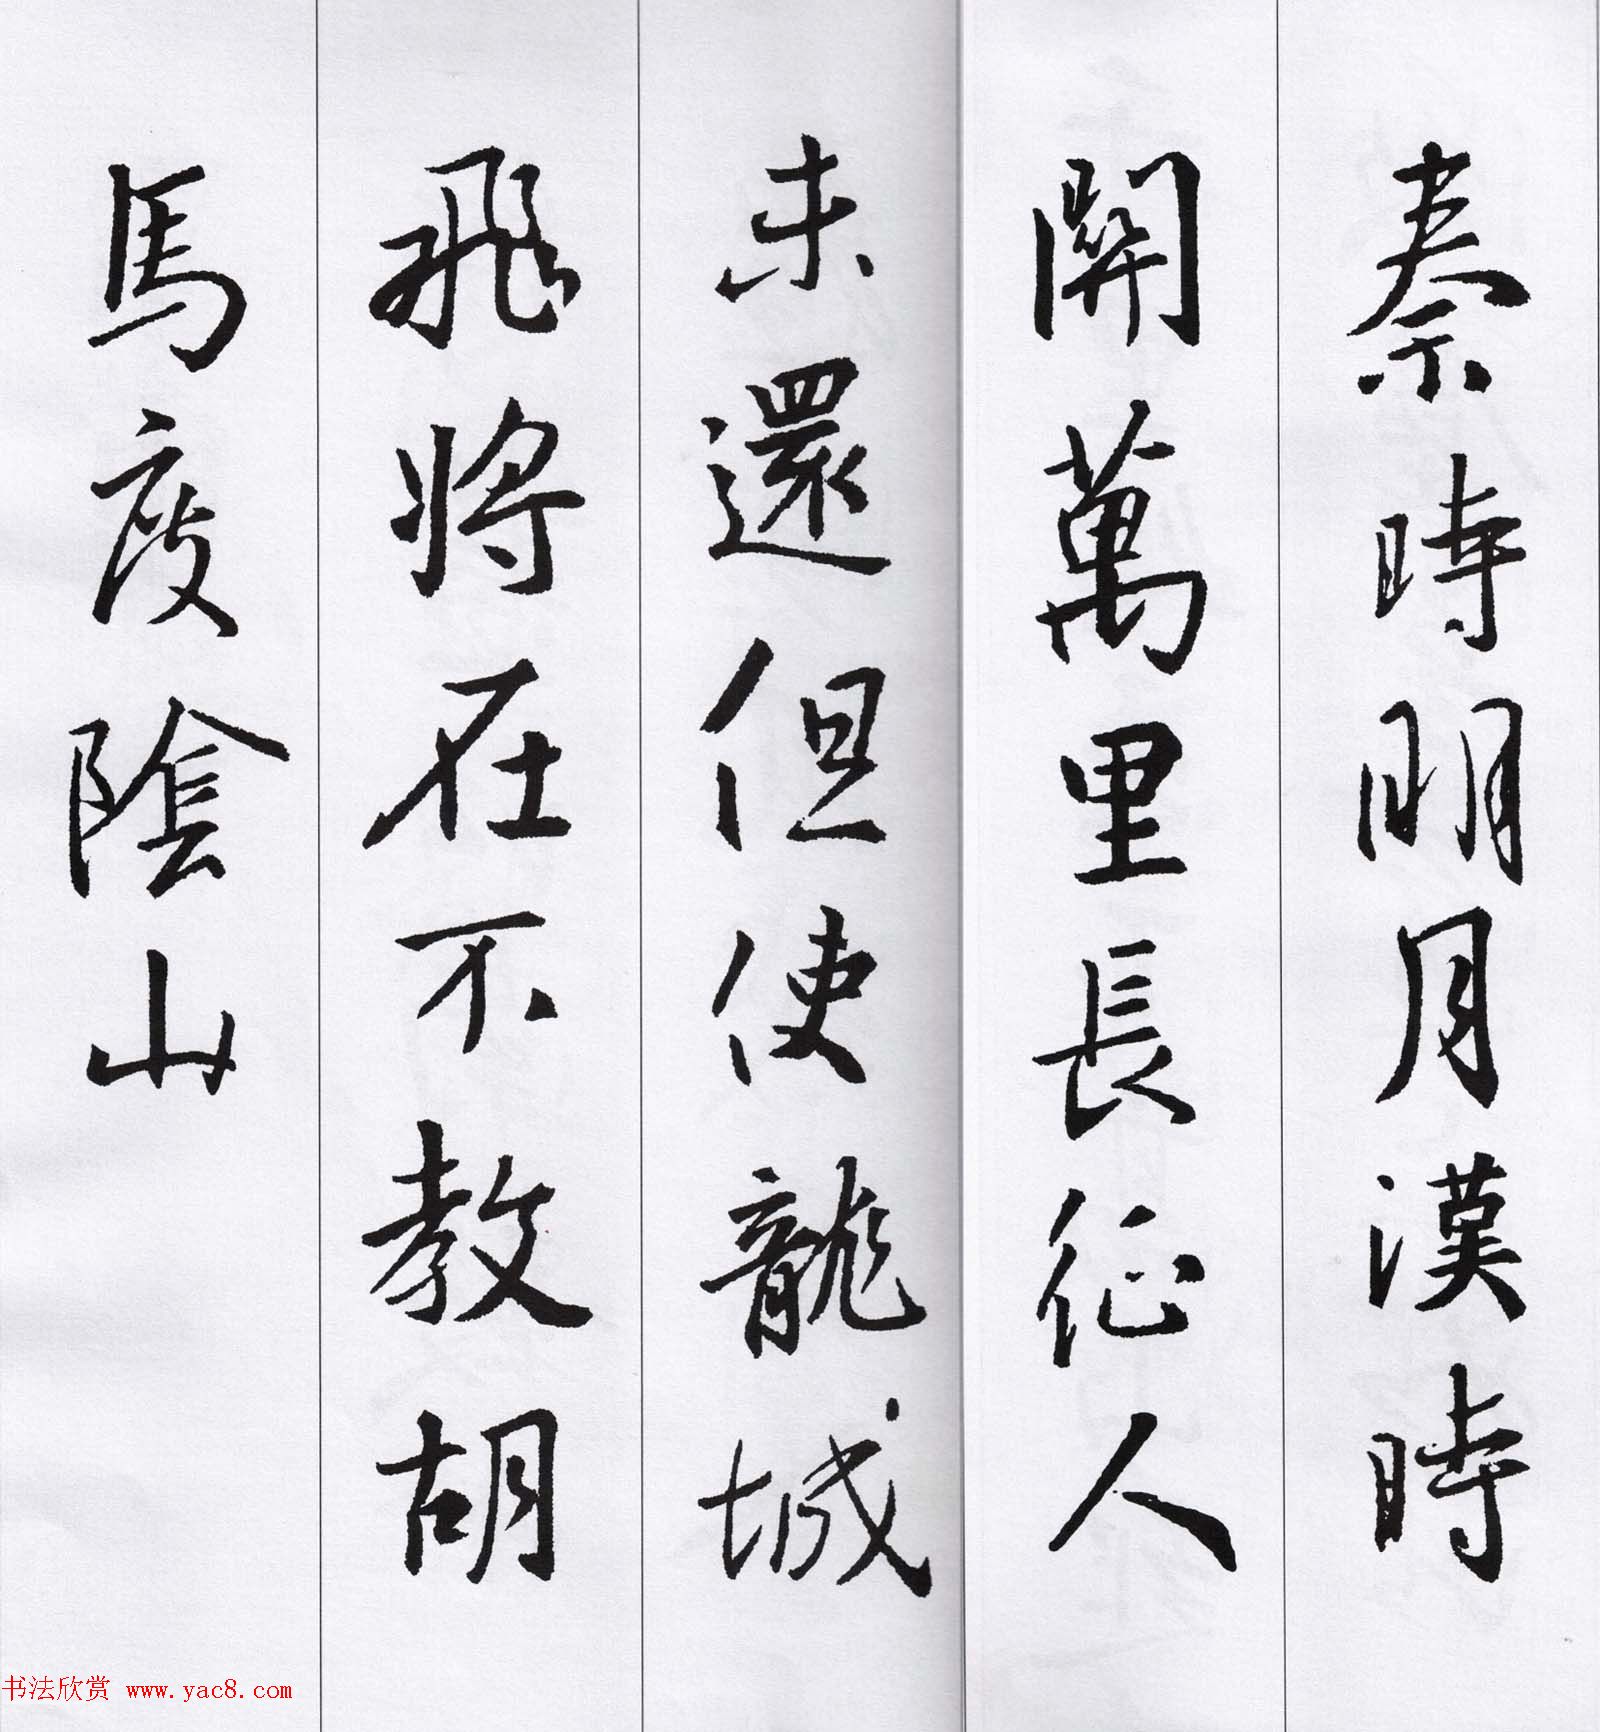 秦時明月漢時
關萬里長征人
未還但使龍城
飛將在不教胡
馬度陰山
书法欣赏 www.yac8.com